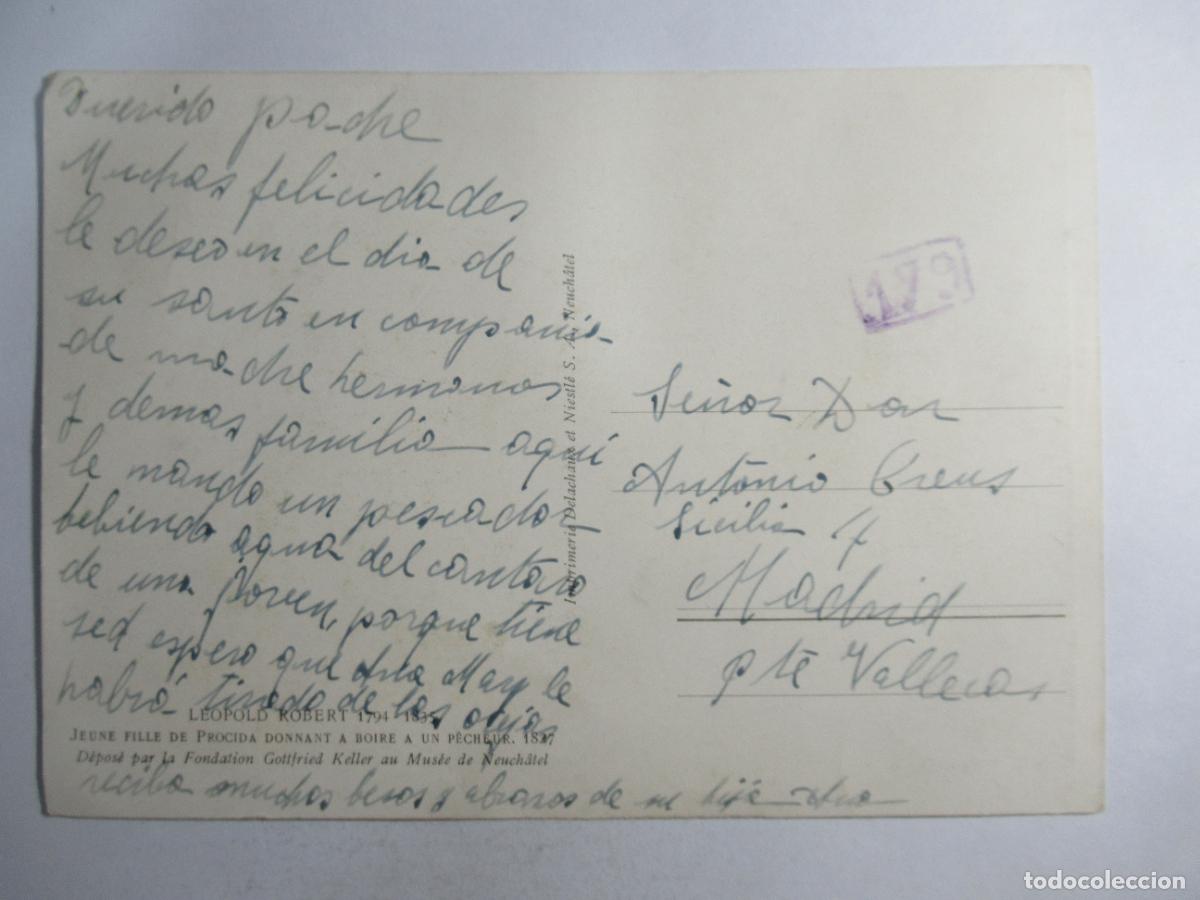 Querido padre
Muchas felicidades
le deseo en el dia de
su santo en compania
de madre hermanos
y demas familia aqui
le mando un pescador
bebiendo agua del cantaro
de una joven, porque tiene
sed espero que Ana Mary le
habrá tirado de las orejas
reciba muchos besos y abrazos de su hija Ana
LÉOPOLD ROBERT 1794-1835
JEUNE FILLE DE PROCIDA DONNANT A BOIRE A UN PÊCHEUR. 1827
Déposé par la Fondation Gottfried Keller au Musée de Neuchâtel
Imprimerie Delachaux et Niestlé S. A., Neuchâtel
179
Señor Don
Antonio Creus
Sicilia 7
Madrid
pte Vallecas
todocoleccion